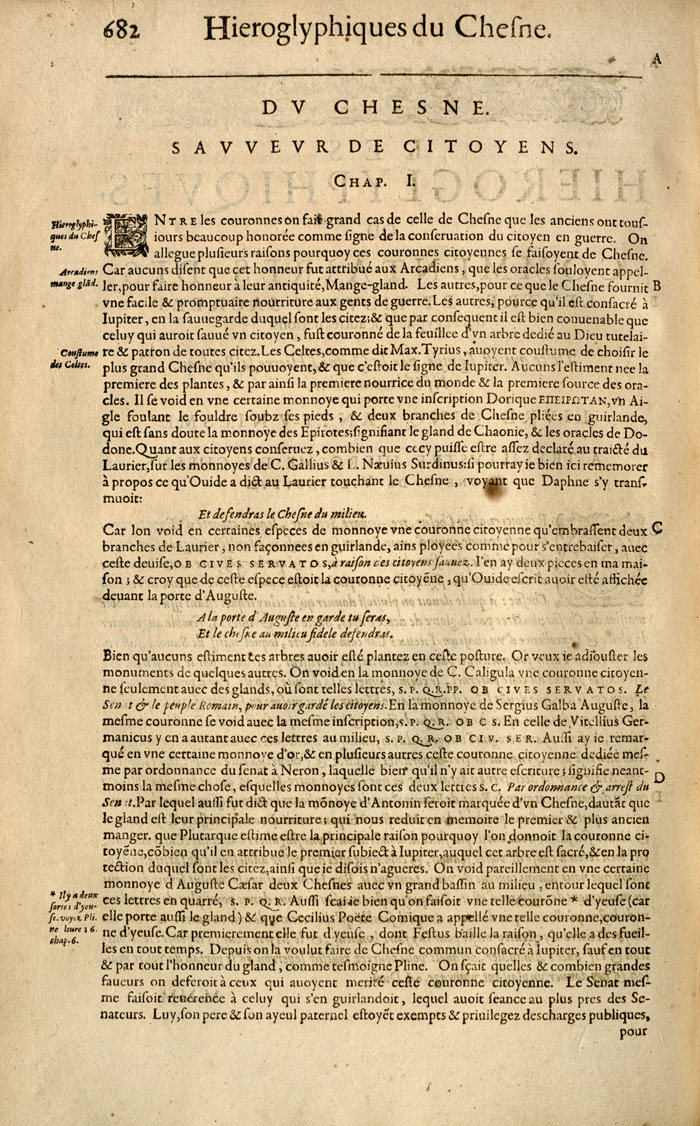 682 Hieroglyphiques du Chesne.
A
DV CHESNE.
SAVVEVR DE CITOYENS.
CHAP. I.
Hieroglyphi-
ques du Ches
ne.
ENTRE les couronnes on fait grand cas de celle de Chesne que les anciens ont tous-
iours beaucoup honorée comme signe de la conseruation du citoyen en guerre. On
allegue plusieurs raisons pourquoy ces couronnes citoyennes se faisoyent de Chesne.
Arcadiens
mange glãd.
Car aucuns disent que cet honneur fut attribué aux Arcadiens, que les oracles souloyent appel-
ler, pour faire honneur à leur antiquité, Mange-gland. Les autres, pour ce que le Chesne fournit B
vne facile & promptuaire nourriture aux gents de guerre. Les autres, pource qu'il est consacré à
Iupiter, en la sauuegarde duquel sont les citez; & que par consequent il est bien conuenable que
celuy qui auroit sauué vn citoyen, fust couronné de la feuillee d'vn arbre dedié au Dieu tutelai-
Coustume
des Celtes.
re & patron de toutes citez. Les Celtes, comme dit Max. Tyrius, auoyent coustume de choisir le
plus grand Chesne qu'ils pouuoyent, & que c'estoit le signe de Iupiter. Aucuns l'estiment nee la
premiere des plantes, & par ainsi la premiere nourrice du monde & la premiere source des ora-
cles. Il se void en vne certaine monnoye qui porte vne inscription Dorique ΕΠΕΙΡΩΤΑΝ, vn Ai-
gle foulant le fouldre soubz ses pieds, & deux branches de Chesne pliées en guirlande,
qui est sans doute la monnoye des Epirotes; signifiant le gland de Chaonie, & les oracles de Do-
done. Quant aux citoyens conseruez, combien que cecy puisse estre assez declaré au traicté du
Laurier, sur les monnoyes de C. Gallius & L. Næuius Surdinus: si pourray ie bien ici rememorer
à propos ce qu'Ouide a dict au Laurier touchant le Chesne, voyant que Daphne s'y trans-
muoit:
Et defendras le Chesne du milieu.
Car lon void en certaines especes de monnoye vne couronne citoyenne qu'embrassent deux C
branches de Laurier, non façonnees en guirlande, ains ployees comme pour s'entrebaiser, auec
ceste deuise, OB CIVES SERVATOS, à raison des citoyens sauuez. I'en ay deux pieces en ma mai-
son; & croy que de ceste espece estoit la couronne citoyẽne, qu'Ouide escrit auoir esté affichée
deuant la porte d'Auguste.
A la porte d'Auguste en garde tu seras,
Et le chesne au milieu fidele defendras.
Bien qu'aucuns estiment ces arbres auoir esté plantez en ceste posture. Or veux ie adiouster les
monuments de quelques autres. On void en la monnoye de C. Caligula vne couronne citoyen-
ne seulement auec des glands, où sont telles lettres, S. P. Q. R. PP. OB CIVES SERVATOS. Le
Senat & le peuple Romain, pour auoir gardé les citoyens. En la monnoye de Sergius Galba Auguste, la
mesme couronne se void auec la mesme inscription, S. P. Q. R. OB C S. En celle de Vitellius Ger-
manicus y en a autant auec ces lettres au milieu, S. P. Q. R. OB CIV. SER. Aussi ay ie remar-
qué en vne certaine monnoye d'or, & en plusieurs autres ceste couronne citoyenne dediée mes-
me par ordonnance du senat à Neron, laquelle bien qu'il n'y ait autre escriture; signifie neant-
D
moins la mesme chose, esquelles monnoyes sont ces deux lettres S. C. Par ordonnance & arrest du
Senat. Par lequel aussi fut dict que la mõnoye d'Antonin seroit marquée d'vn Chesne, dautãt que
le gland est leur principale nourriture; qui nous reduit en memoire le premier & plus ancien
manger. que Plutarque estime estre la principale raison pourquoy l'on donnoit la couronne ci-
toyẽne, cõbien qu'il en attribue le premier subiect à Iupiter, auquel cet arbre est sacré, & en la pro
tection duquel sont les citez, ainsi que ie disois n'agueres. On void pareillement en vne certaine
monnoye d'Auguste Cæsar deux Chesnes auec vn grand bassin au milieu, entour lequel sont
* Il y a deux
sortes d'yeu-
se. voyez Pli.
ne liure 16.
chap. 6.
ces lettres en quarré, S. P. Q. R. Aussi scai-ie bien qu'on faisoit vne telle courõne * d'yeuse (car
elle porte aussi le gland) & que Cecilius Poëte Comique a appellé vne telle couronne, couron-
ne d'yeuse. Car premierement elle fut d'yeuse, dont Festus baille la raison, qu'elle a des fueil-
les en tout temps. Depuis on la voulut faire de Chesne commun consacré à Iupiter, sauf en tout
& par tout l'honneur du gland, comme tesmoigne Pline. On sçait quelles & combien grandes
faueurs on deferoit à ceux qui auoyent merité ceste couronne citoyenne. Le Senat mes-
me faisoit reuerence à celuy qui s'en guirlandoit, lequel auoit seance au plus pres des Se-
nateurs. Luy, son pere & son ayeul paternel estoyẽt exempts & priuilegez descharges publiques,
pour